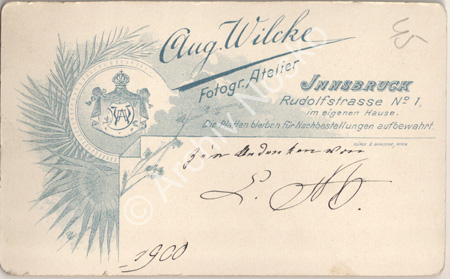 Aug. Wilcke
Fotogr. Atelier
INNSBRUCK
Rudolfstrasse Nº 1,
im eigenen Hause.
Die Platten bleiben für Nachbestellungen aufbewahrt.
Zum Andenken von
1900